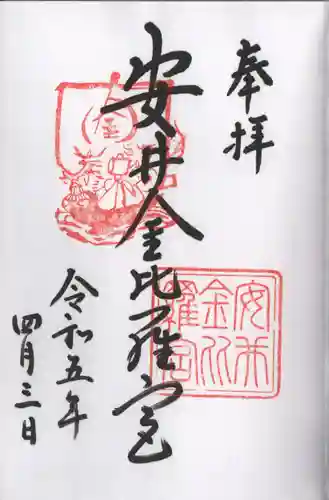 奉拝
安井金比羅宮
安井金比羅宮
金
令和五年
四月三日